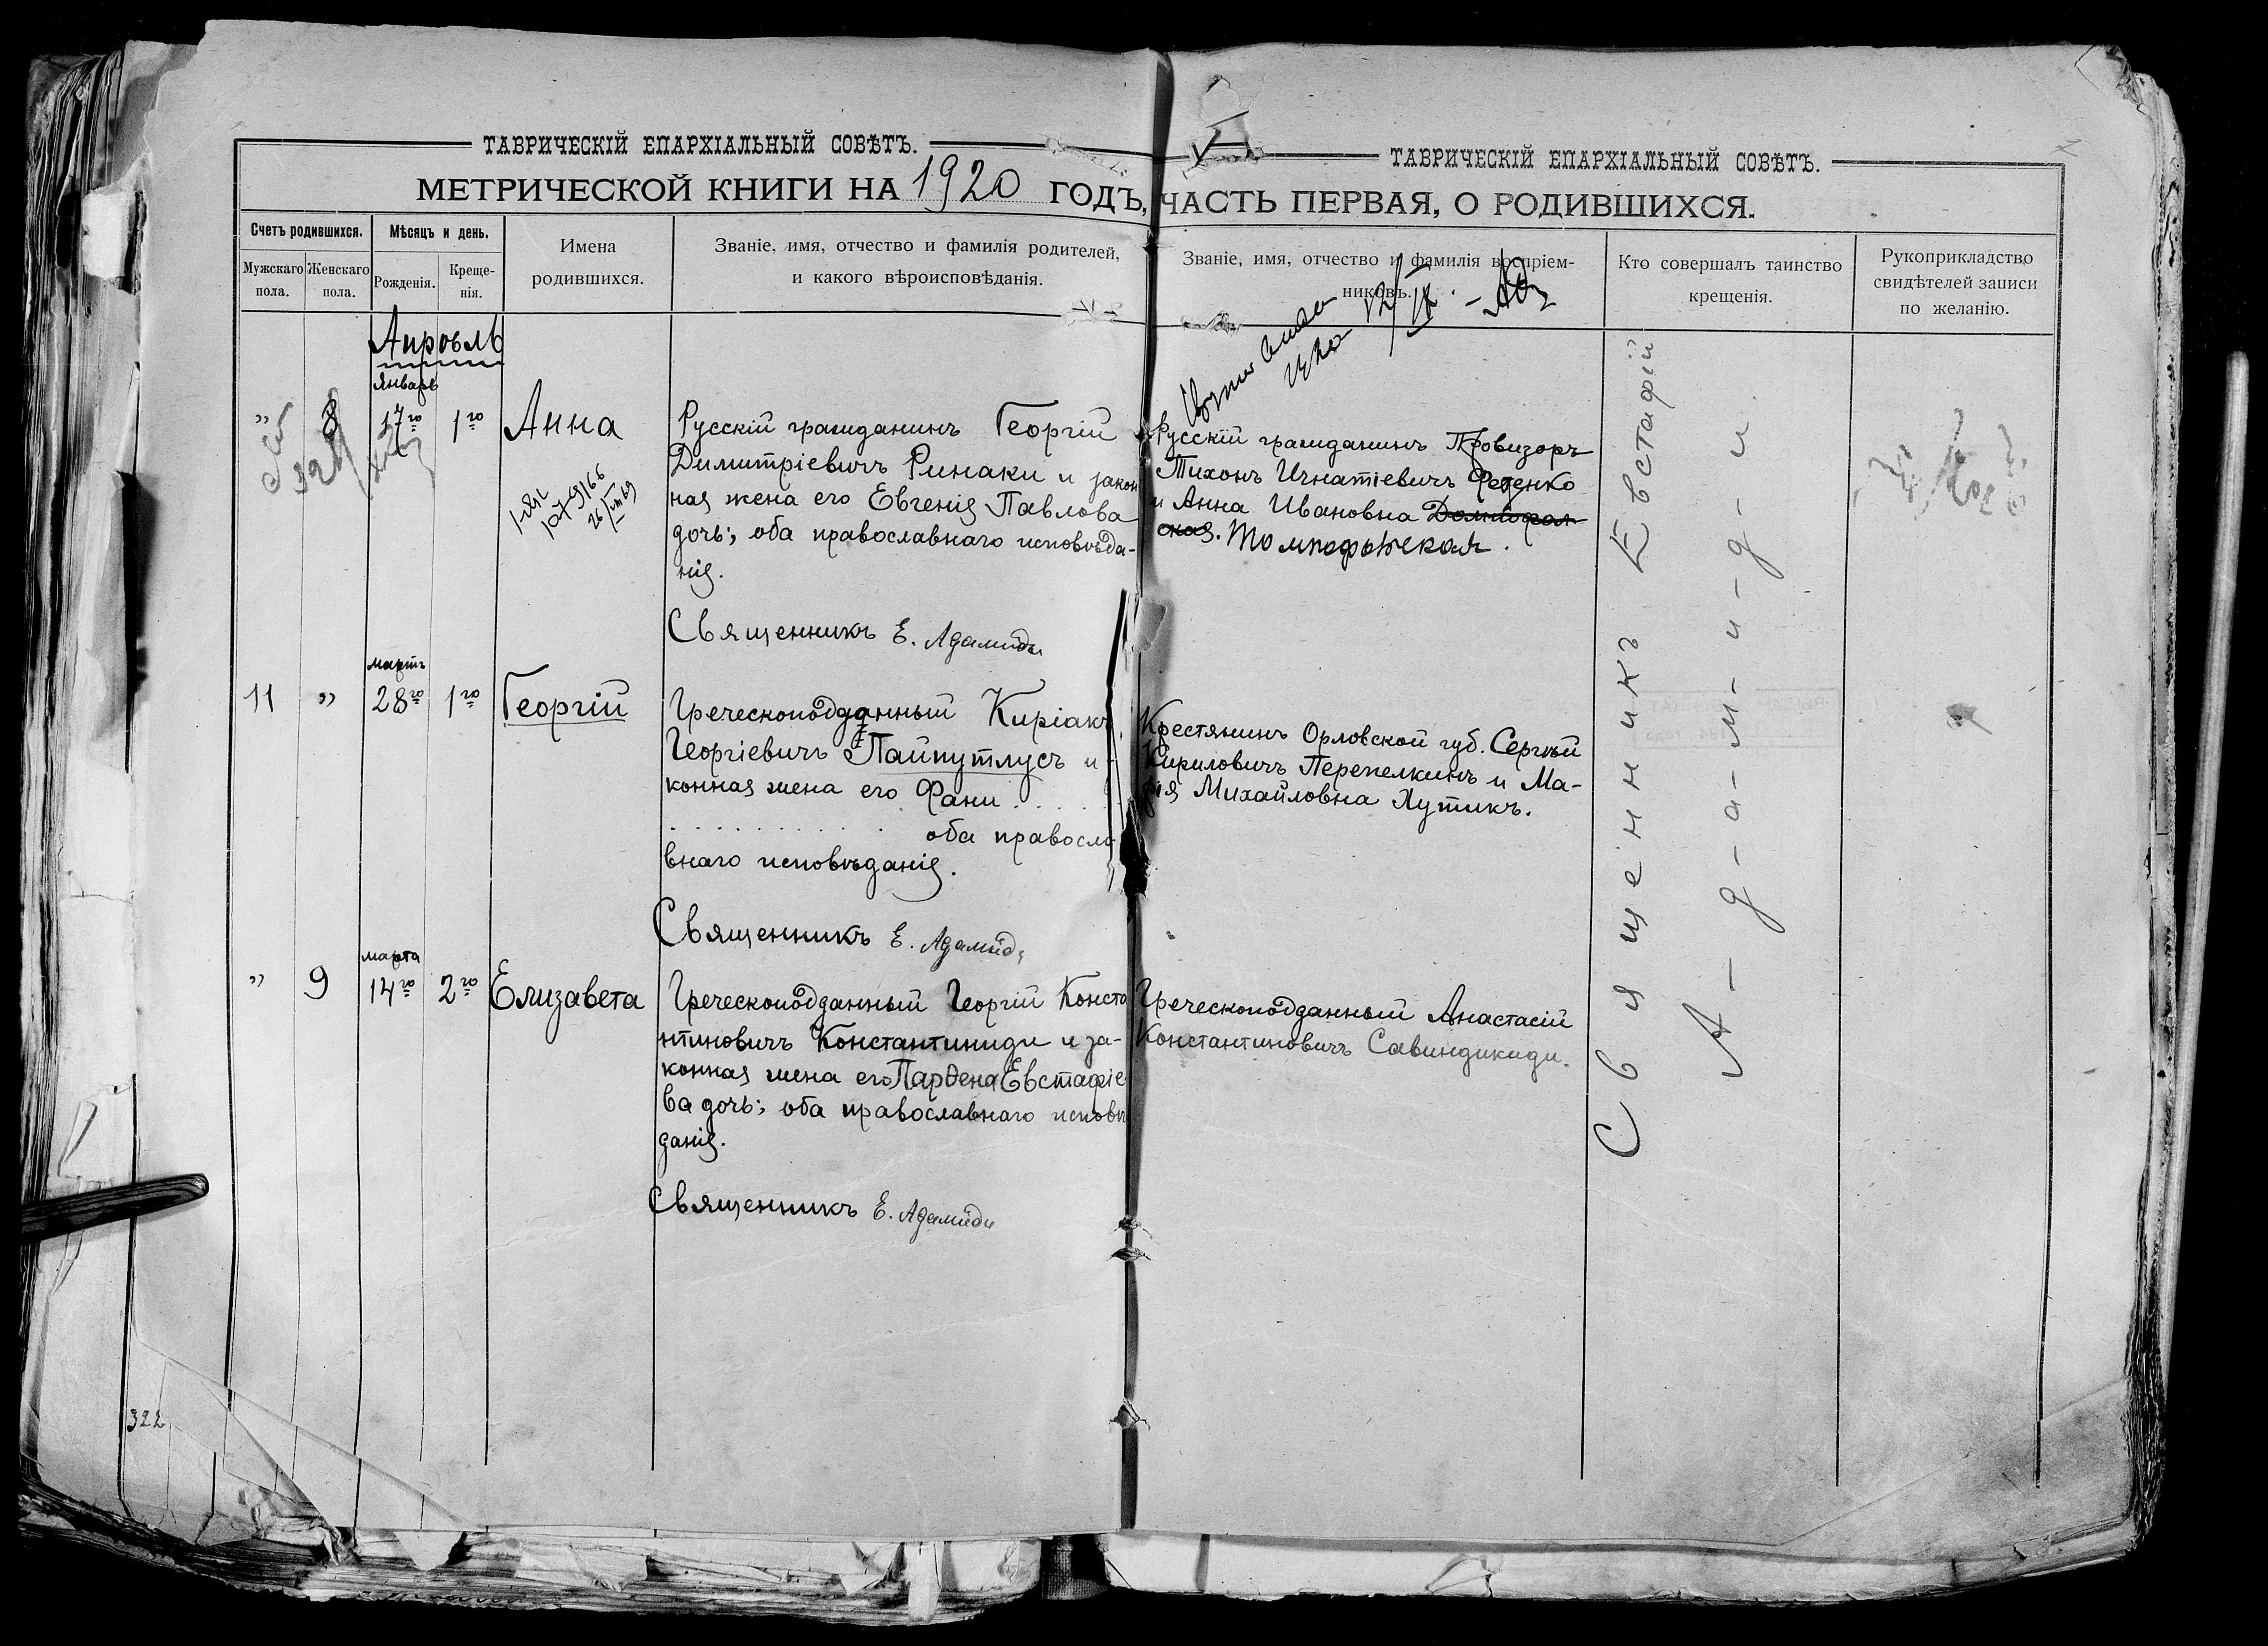 ТАВРИЧЕСКІЙ ЕПАРХІАЛЬНЫЙ СОВѢТЪ.
МЕТРИЧЕСКОЙ КНИГИ НА 1920 ГОДЪ,
Счетъ родившихся.
Мужскаго пола.
Женскаго пола.
Мѣсяцъ и день.
Рожденія.
Креще-
нія.
Имена
родившихся.
Званіе, имя, отчество и фамилія родителей,
и какого вѣроисповѣданія.
Апрѣль
январь
" 8 17го 1го Анна
Русскій гражданинъ Георгій
Димитріевичъ Ринаки и закон
ная жена его Евгенія Павлова
дочь; оба православнаго исповѣда-
нія.
Священникъ Е. Адамиди
мартъ
11 " 28го 1го Георгій
Греческоподданный Киріакъ
Георгіевичъ Пайпутлусъ и
конная жена его Фани . . . . .
. . . . . . . . . . . оба правосла
внаго исповѣданія.
Священникъ Е. Адамиди
марта
" 9 14го 2го Елизавета
Греческоподданный Георгій Конста
нтиновичъ Константиниди и за-
конная жена его Парѳена Евстафіе
ва дочь; оба православнаго исповѣ
данія.
Священникъ Е. Адамиди
322
ТАВРИЧЕСКІЙ ЕПАРХІАЛЬНЫЙ СОВѢТЪ.
ЧАСТЬ ПЕРВАЯ, О РОДИВШИХСЯ.
Званіе, имя, отчество и фамилія воспріем-
никовъ.
Кто совершалъ таинство
крещенія.
Рукоприкладство
свидѣтелей записи
по желанію.
Русскій гражданинъ Провизоръ
Тихонъ Игнатіевичъ Феденко
и Анна Ивановна
Крестянинъ Орловской губ. Сергѣй
Кириловичъ Перепелкинъ и Ма-
рія Михайловна Хутикъ.
Греческоподданный Анастасій
Константиновичъ Савиндикиди.
Священникъ Евстафій
А-д-а-м-и-д-и.